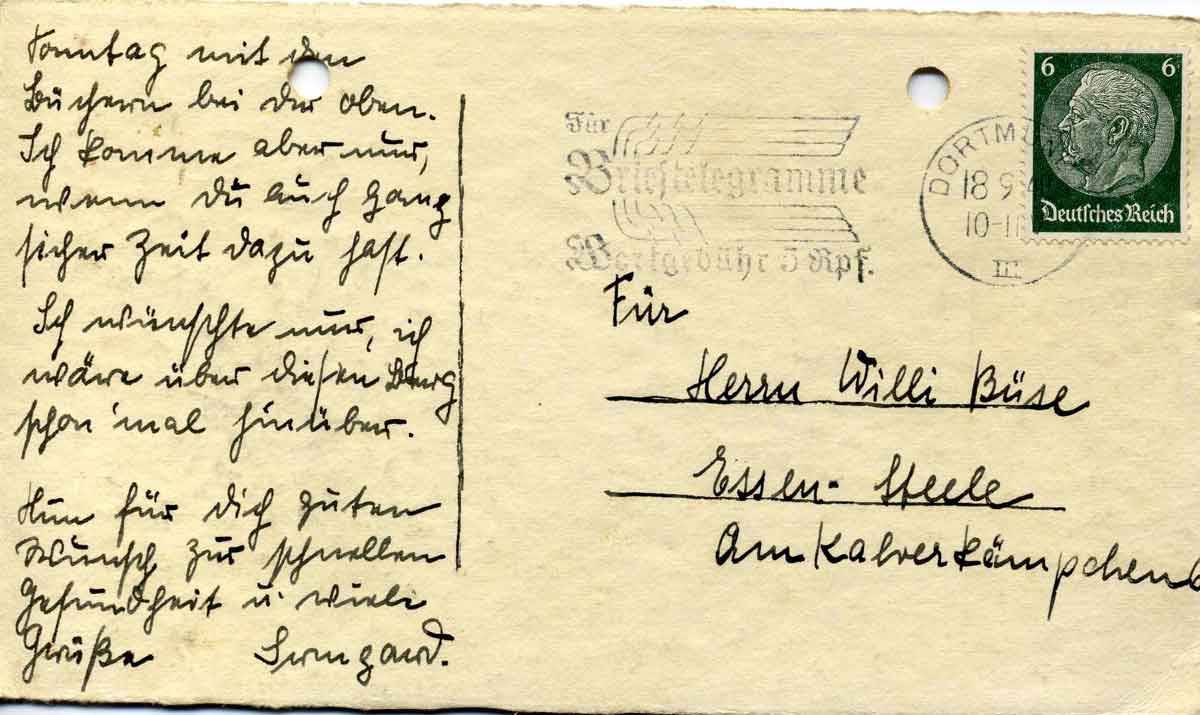 Sonntag mit den
Büchern bei dir oben.
Ich komme aber nur,
wenn du auch ganz
sicher Zeit dazu hast.
Ich wünschte nur, ich
wäre über diesen Berg
schon 'mal hinüber.
Nun für dich guten
Wunsch zur schnellen
Gesundheit u. viele
Grüße Irmgard.
Für
Brieftelegramme
Wortgebühr 5 Rpf.
DORTMU
18 9
10-11
III
6 6
Deutsches Reich
Für
Herrn Willi Büse
Essen-Steele
Am Kalverkämpchen